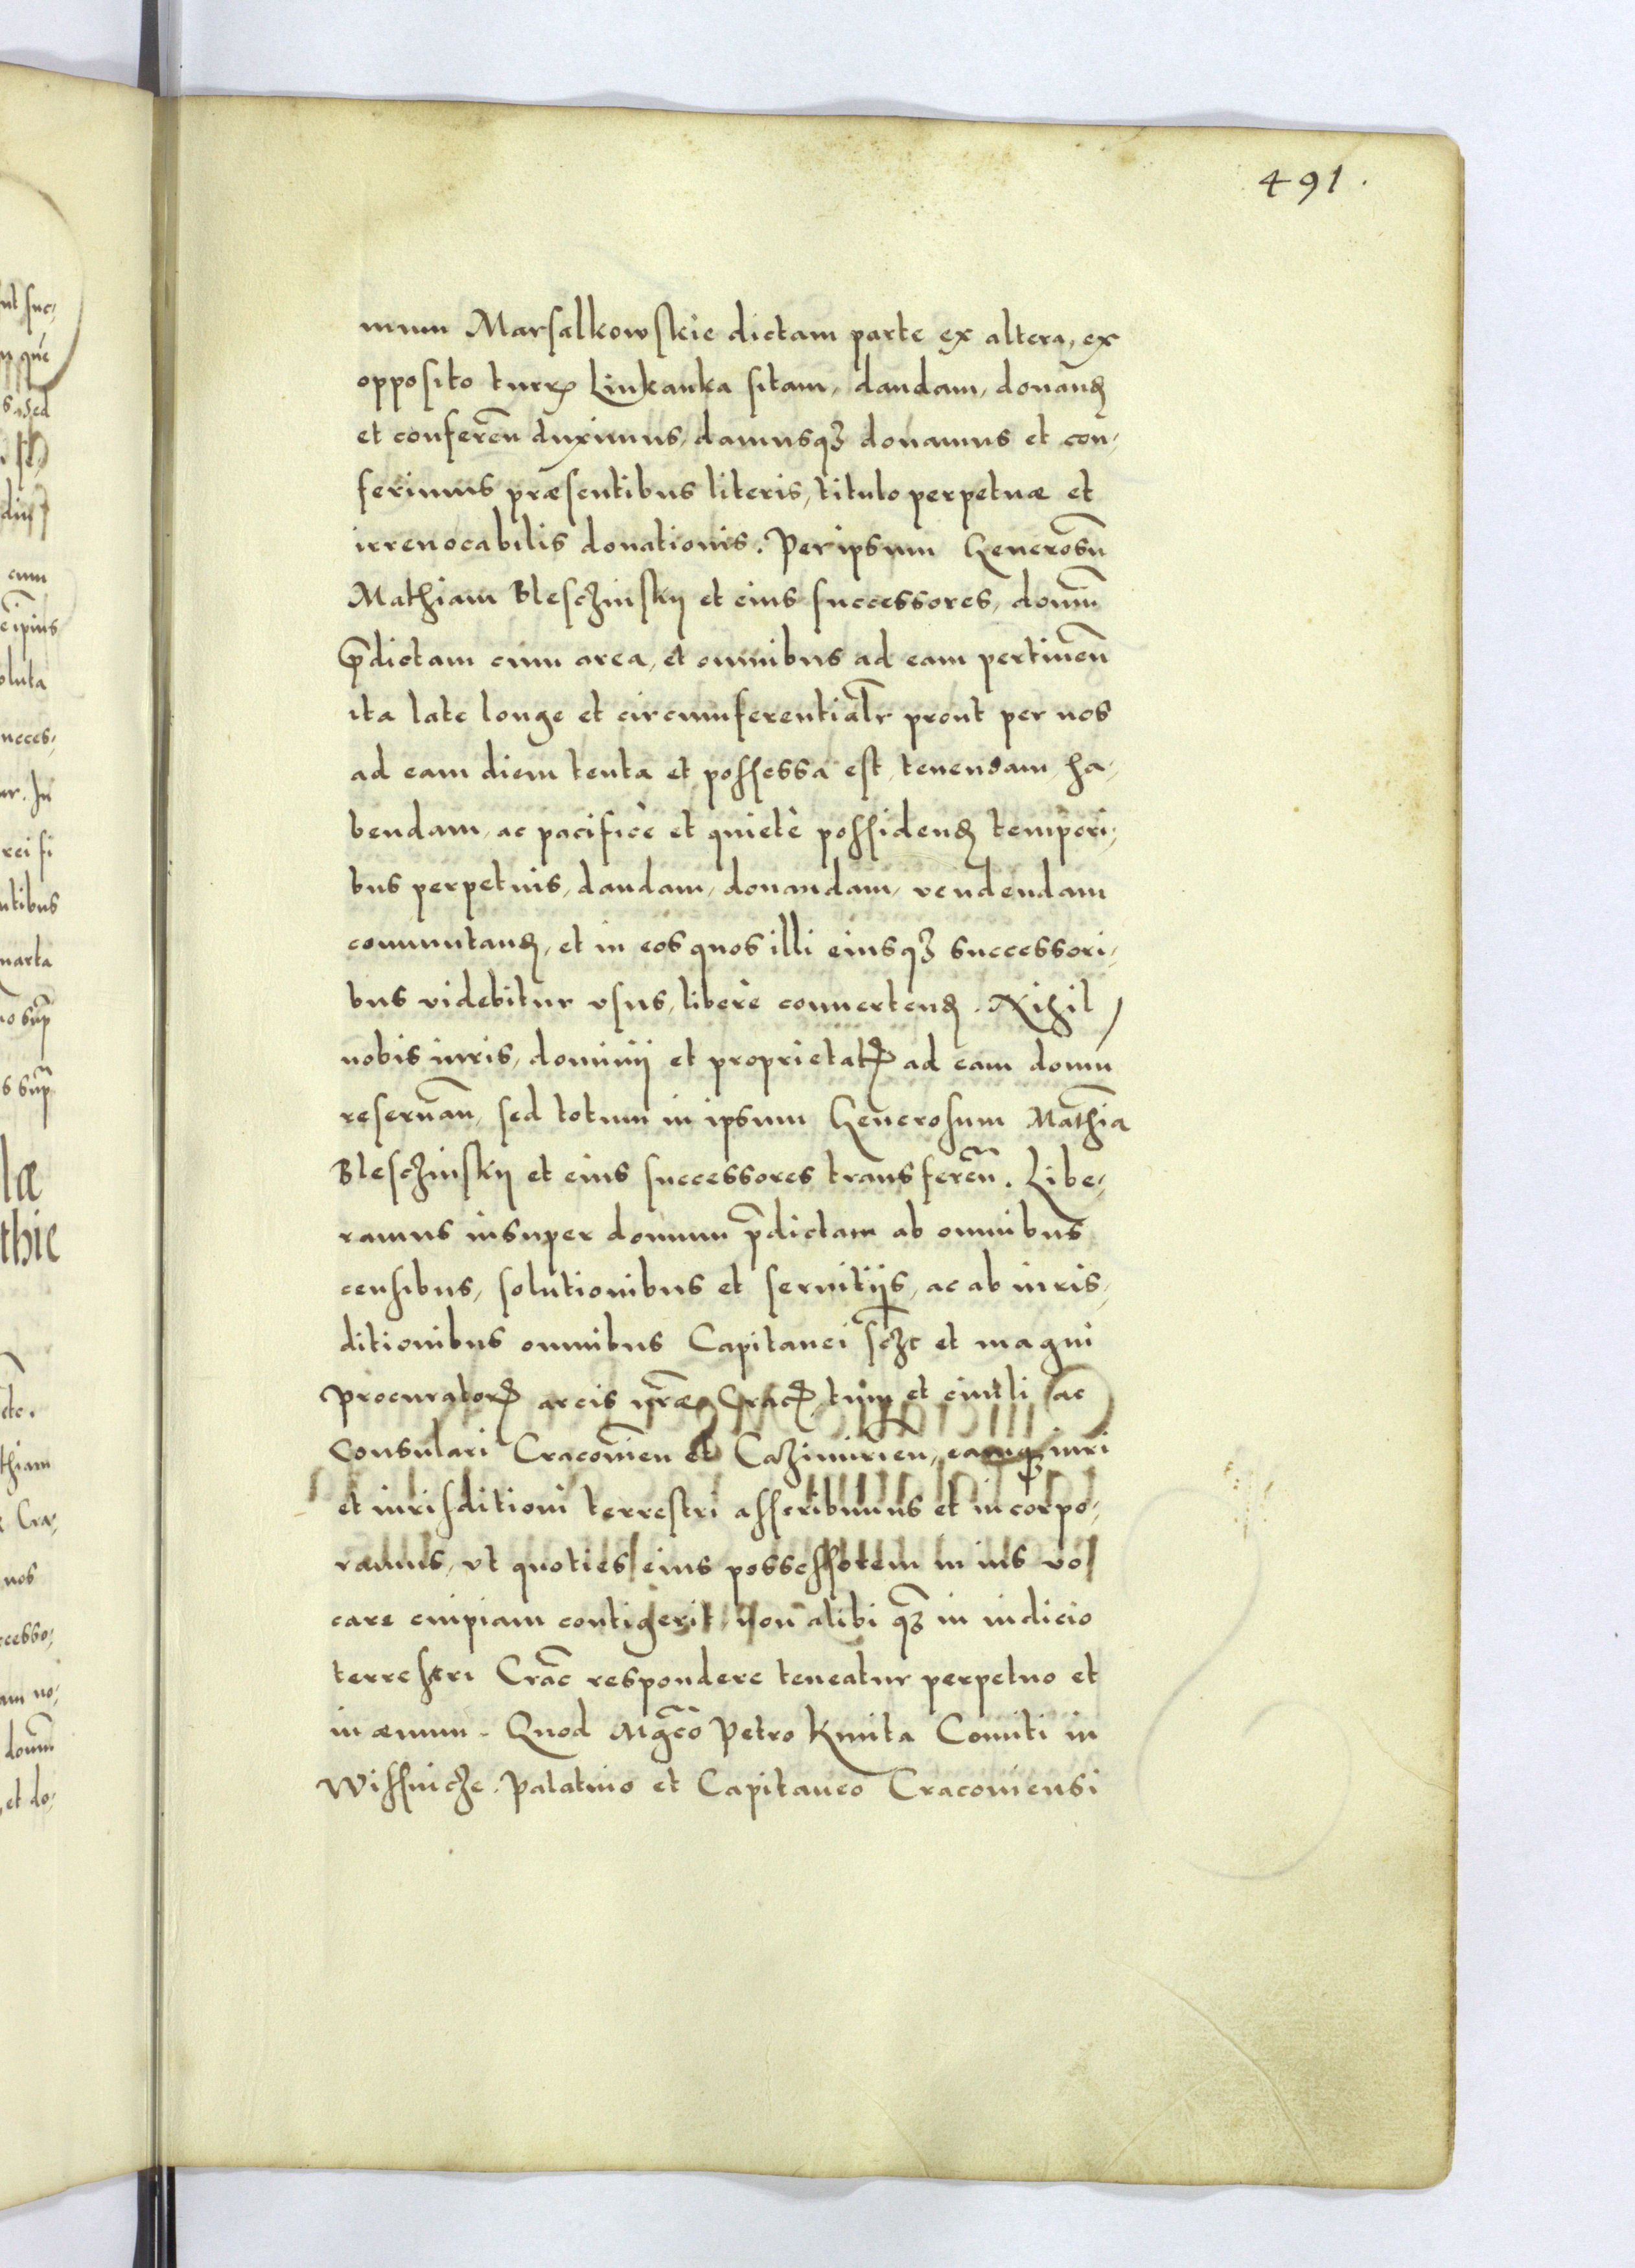 491.
mum Marsalkowskie dictam parte ex altera, ex
opposito turris Linkanka sitam, dandam, donand
et conferen̄ duximus, damusqꝫ donamus et con-
ferimus præsentibus literis, titulo perpetuæ et
irreuocabilis donationis. Per ipsum Generosū
Mathiam Bleschinskij et eius successores, domū
p̄dictam cum area, et omnibus ad eam pertinen̄
ita late longe et circumferentialr̄ prout per nos
ad eam diem tenta et possessa est, tenendam, ha-
bendam, ac pacificè et quietè possidend tempori-
bus perpetuis, dandam, donandam, vendendam
commutand, et in eos quos illi eiusqꝫ successori-
bus videbitur vsus, liberè conuertend. Nihil
nobis iuris, dominij et proprietatꝭ ad eam domū
reseruan̄, sed totum in ipsum Generosum Mathiā
Bleschinskij et eius successores transferen̄. Libe-
ramus insuper domum p̄dictam ab omnibus
censibus, solutionibus et seruitijs, ac ab iuris-
ditionibus omnibus Capitanei sczt et magni
procuratorꝭ arcis nr̄æ Cracꝭ, tum et ciuili ac
Consulari Cracouien̄ et Cazimirien̄, eamqꝫ iuri
et iurisditioni terrestri asscribimus et incorpo-
ramus, vt quoties eius possessorem in ius vo
care cuipiam contigerit, non alibi qꝫ in iudicio
terrestri Crac̄ respondere teneatur perpetuo et
in æuum. Quod Mgc̄o Petro Kmita Comiti in
Wissnicze. Palatino et Capitaneo Cracouiensi